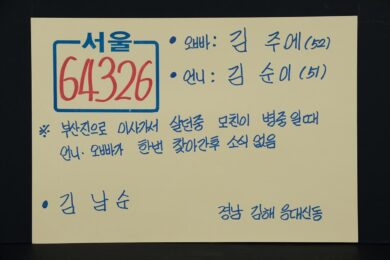 서울
64326
• 오빠 : 김 주에 (52)
• 언니 : 김 순이 (51)
※ 부산진으로 이사가서 살던중 모친이 병중일때
언니· 오빠가 한번 찾아간후 소식 없음
• 김 남순
경남 김해 응대신동